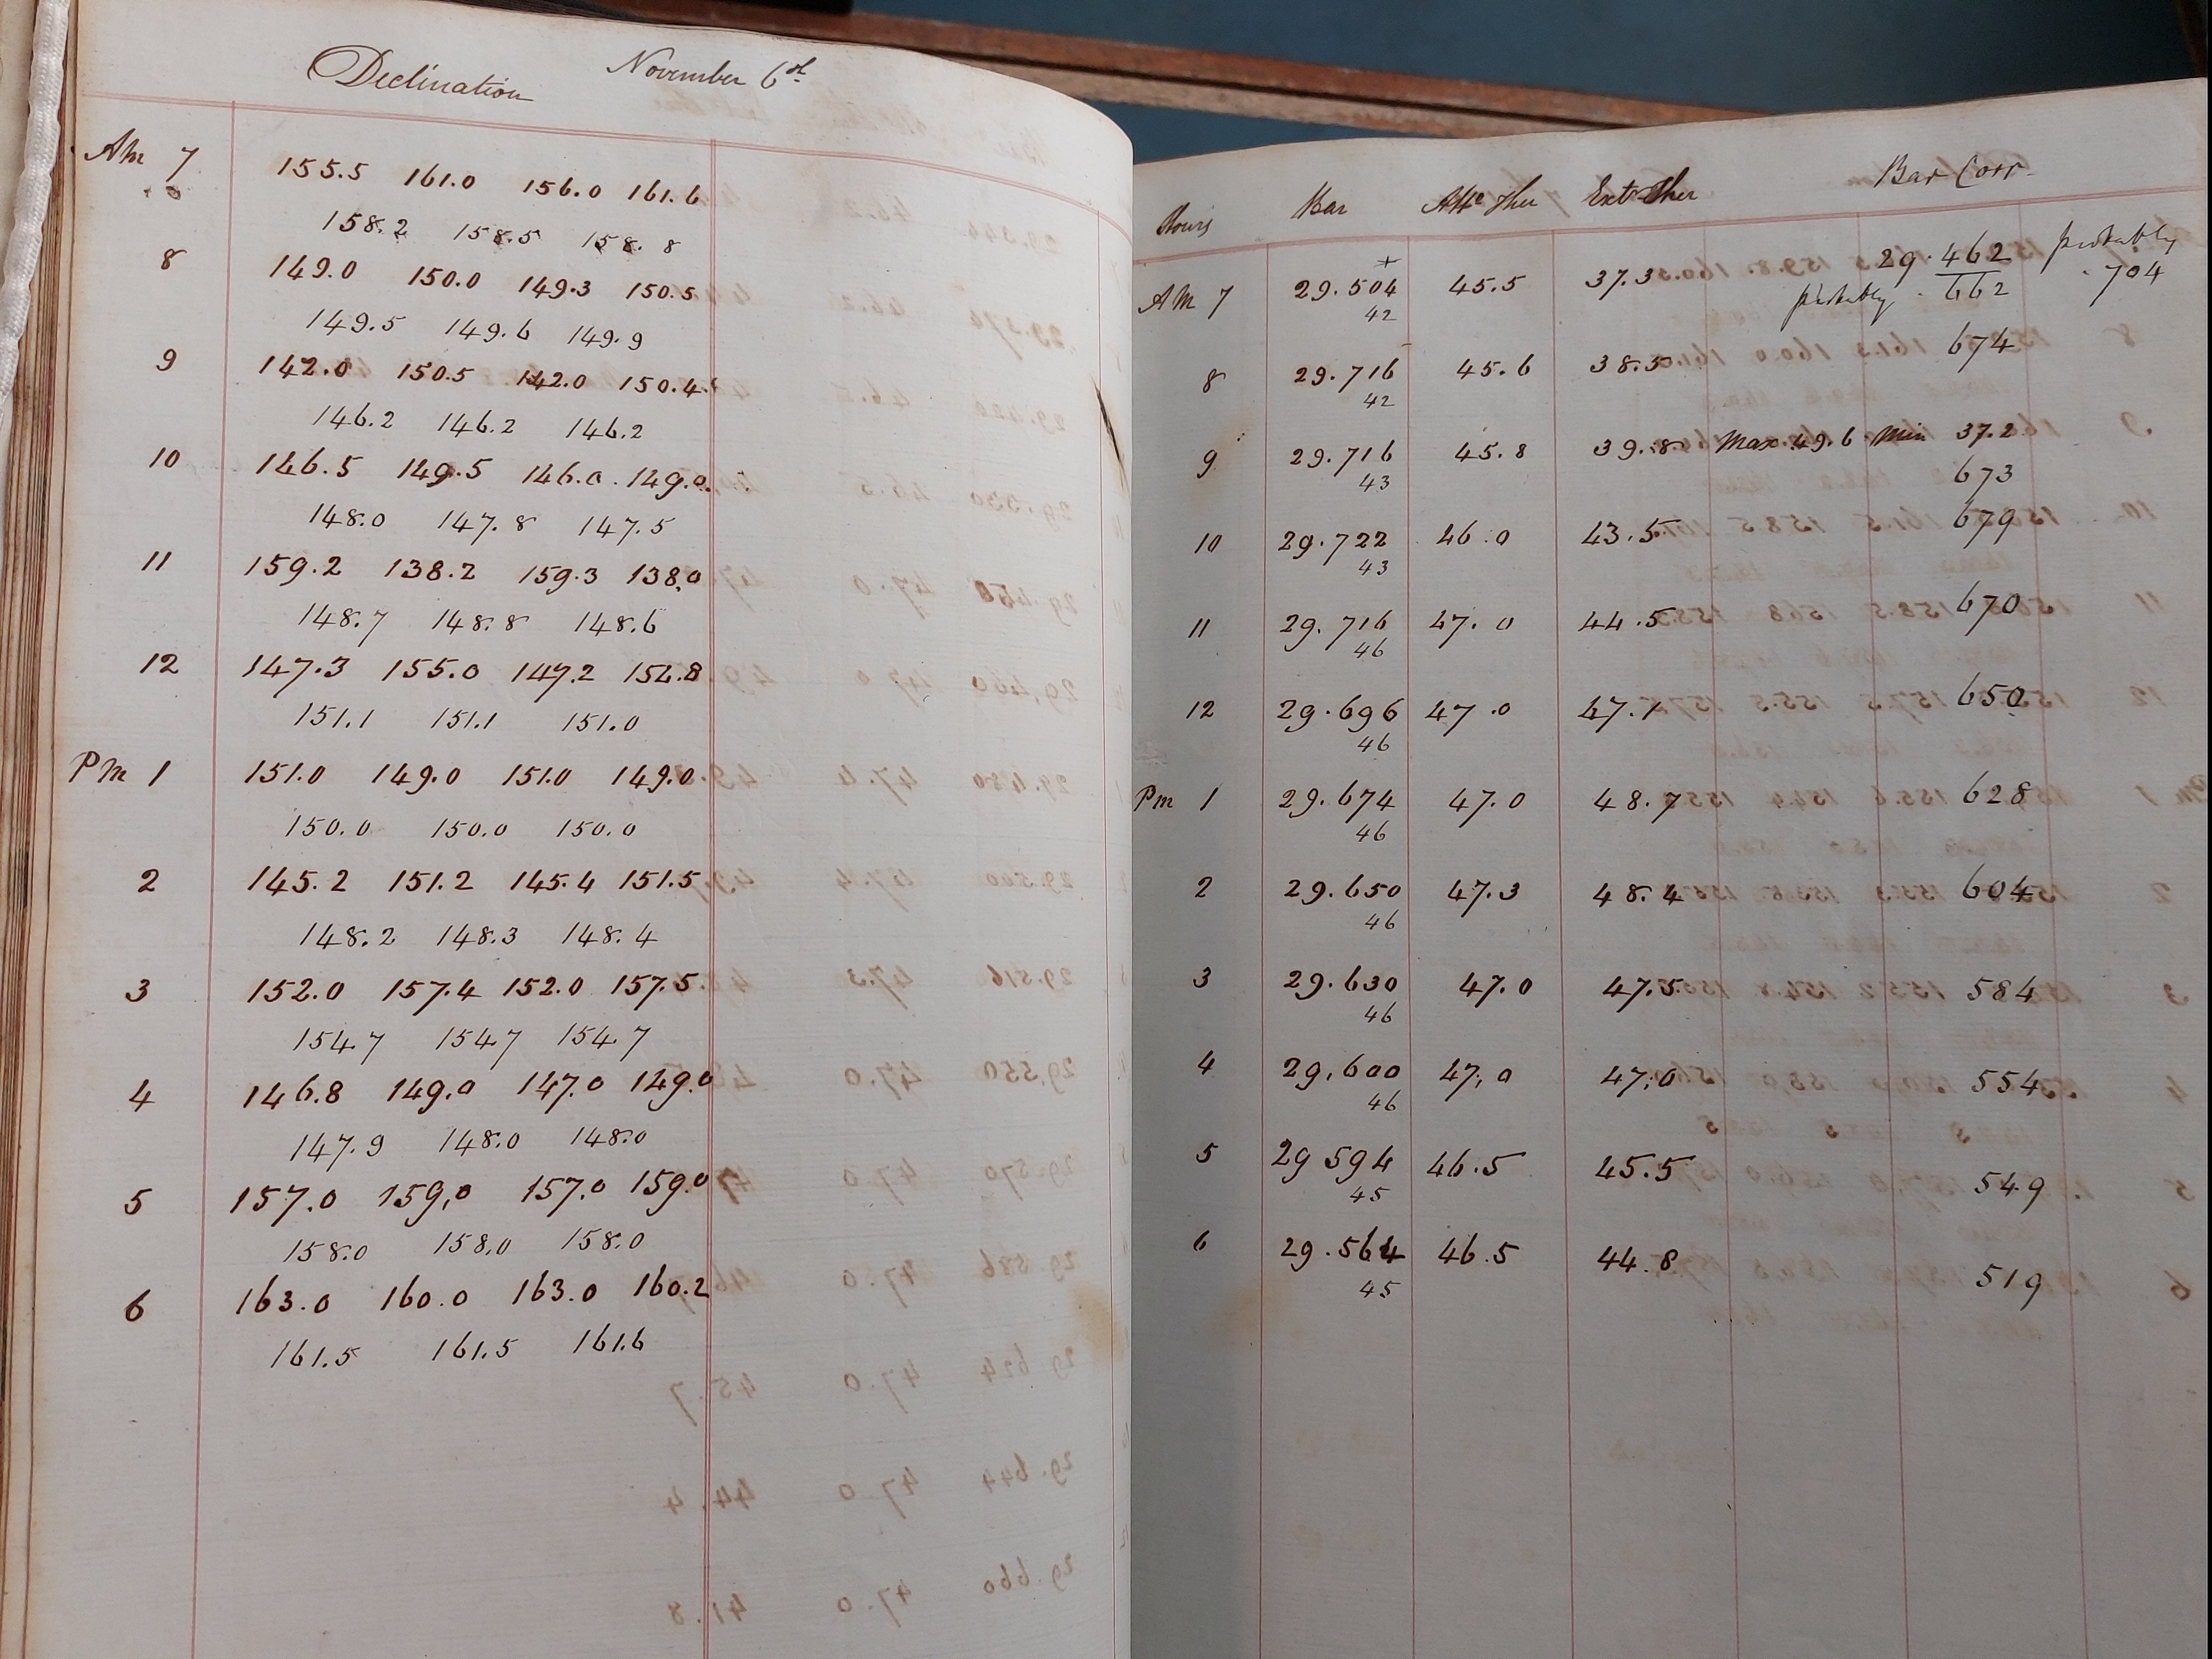 Declination November 6th
Am 7 155.5 161.0 156.0 161.6
158.2 158.5 158.8
8 149.0 150.0 149.3 150.5
149.5 149.6 149.9
9 142.0 150.5 142.0 150.4
146.2 146.2 146.2
10 146.5 149.5 146.0 149.0
148.0 147.8 147.5
11 159.2 138.2 159.3 138.0
148.7 148.8 148.6
12 147.3 155.0 147.2 154.8
151.1 151.1 151.0
Pm 1 151.0 149.0 151.0 149.0
150.0 150.0 150.0
2 145.2 151.2 145.4 151.5
148.2 148.3 148.4
3 152.0 157.4 152.0 157.5
154.7 154.7 154.7
4 146.8 149.0 147.0 149.0
147.9 148.0 148.0
5 157.0 159,0 157.0 159.0
158.0 158,0 158.0
6 163.0 160.0 163.0 160.2
161.5 161.5 161.6
Hours Bar Atte Ther Ext Ther Bar Corr
Am 7 29.504 + 45.5 37.3 29.462 probably
42 probably .662 .704
8 29.716 45.6 38.5 674
42
9 29.716 45.8 39.8 Max 49.6 Min 37.2
43 673
10 29.722 46.0 43.5 679
43
11 29.716 47.0 44.5 670
46
12 29.696 47.0 47.1 650
46
Pm 1 29.674 47.0 48.7 628
46
2 29.650 47.3 48.4 604
46
3 29.630 47.0 47.5 584
46
4 29,600 47,0 47,0 554
46
5 29 594 46.5 45.5 549
45
6 29.564 46.5 44.8 519
45